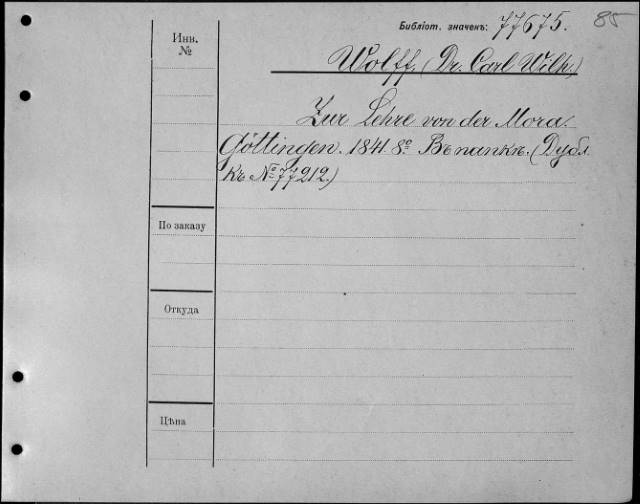 Библіот. значекъ: 77675. 85
Инв.
№
Wolff. (Dr. Carl Wilh.)
Zur Lehre von der Mora.
Göttingen. 1841. 8º. Въ папкѣ. (Дубл.
къ № 77212.)
По заказу
Откуда
Цѣна